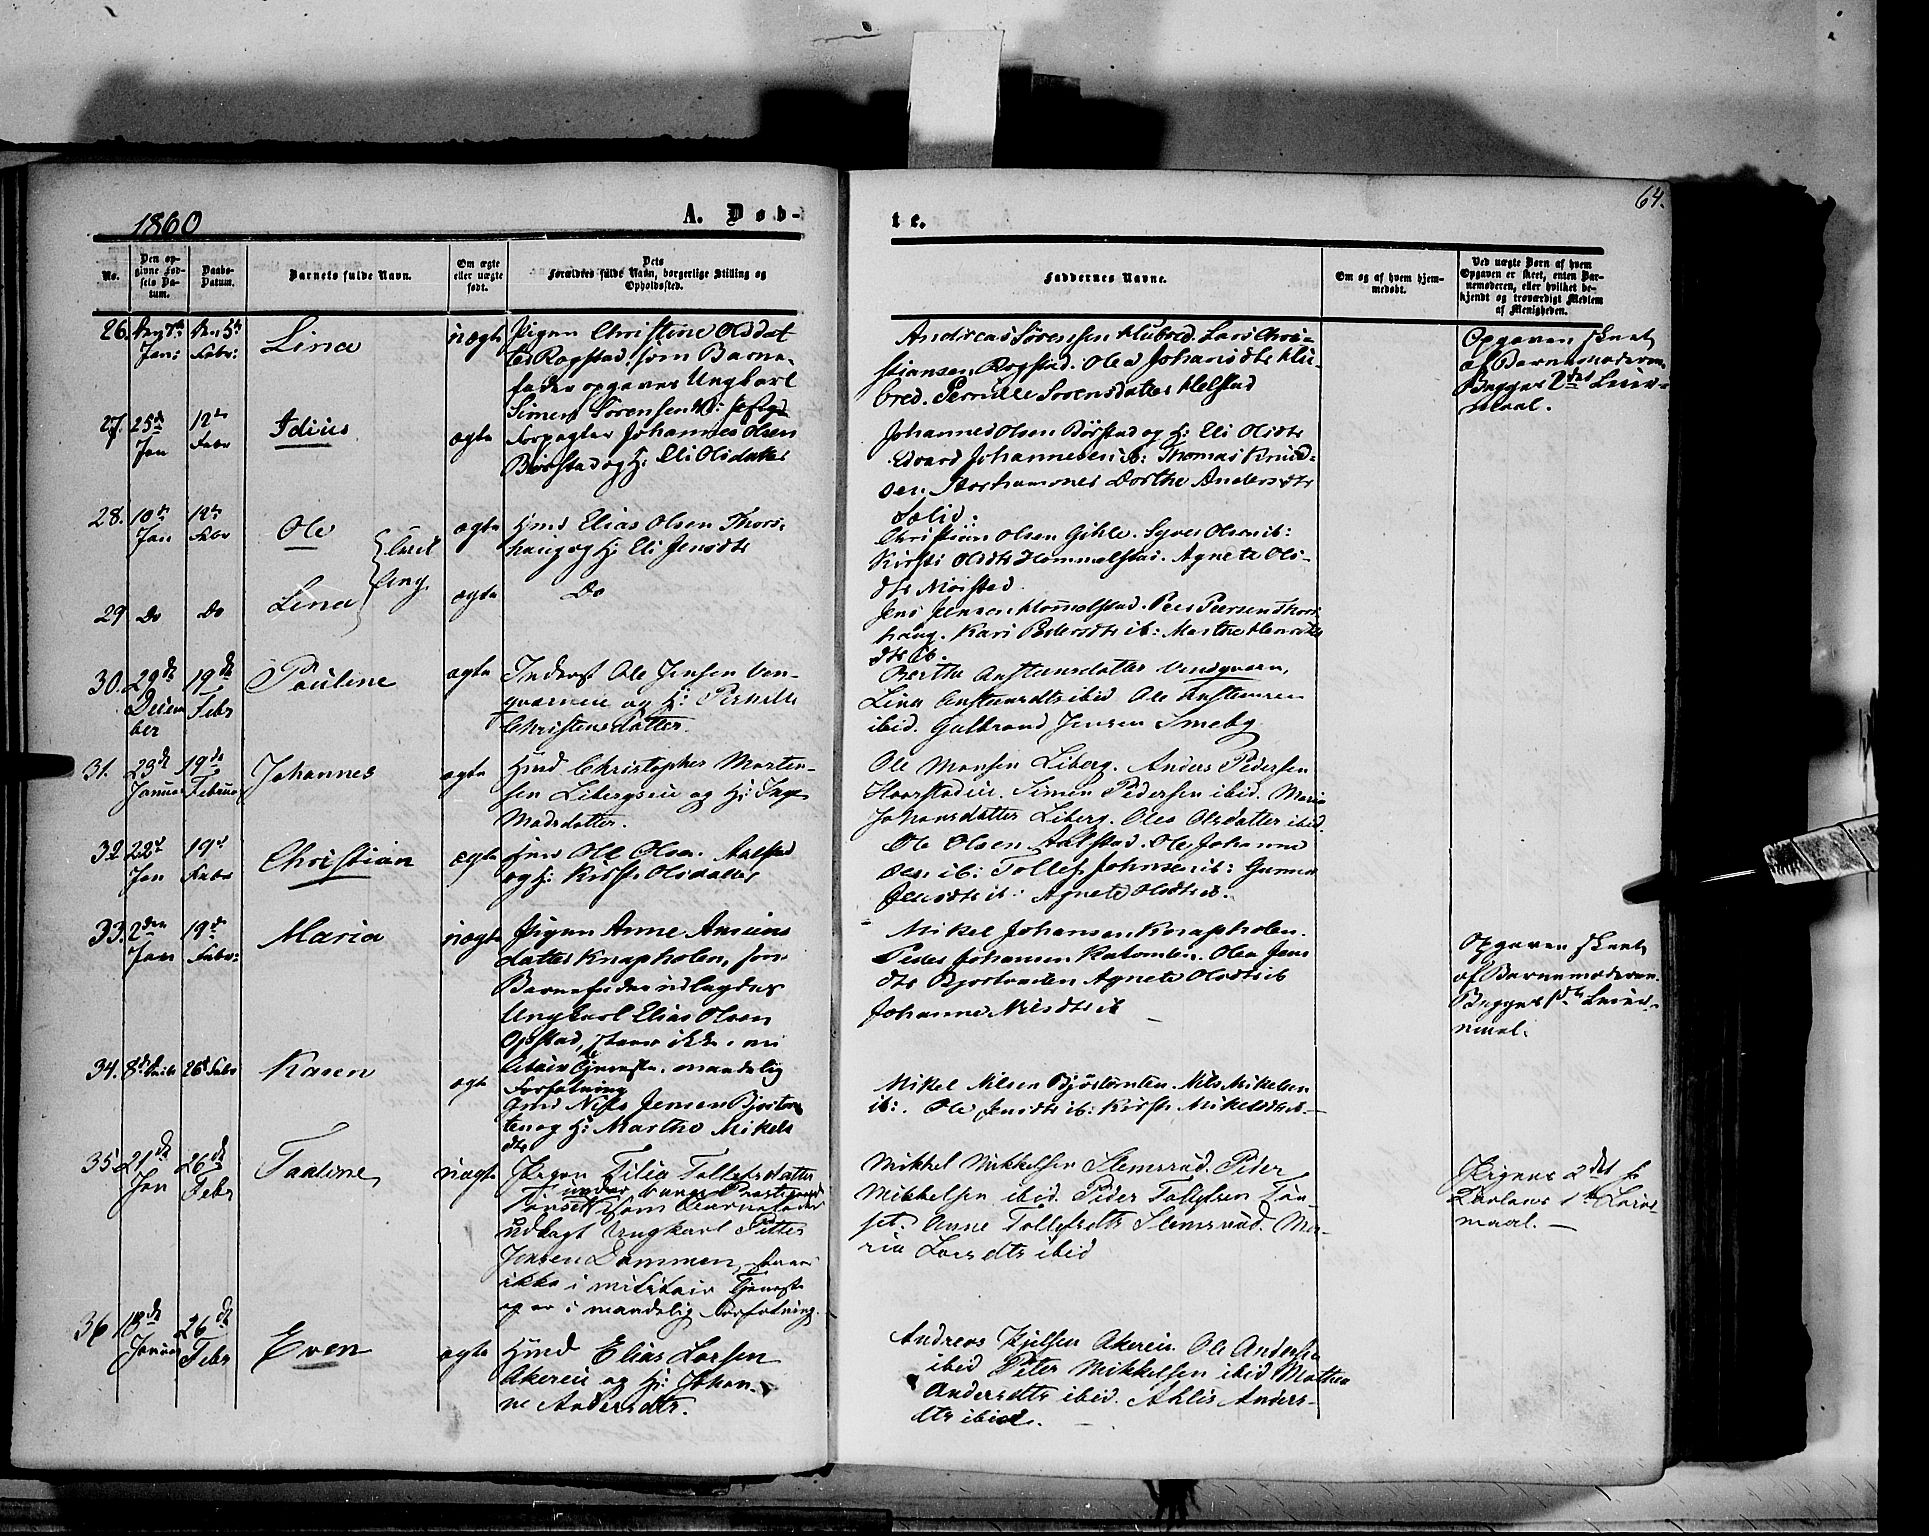 1860
A. Døb-
te.
64.
No.
Den op-
givne Fød-
sels Da-
tum.
Daabs-
Datum.
Barnets fulde Navn.
Om ægte
eller uægte
født.
Dets
Forældres fulde Navn, borgerlige Stilling og
Opholdssted.
Faddernes Navne.
Om og af hvem hjem-
medøbt.
Ved uægte Børn af hvem
Opgaven er skeet, enten Bar-
nemoderen, eller hvilket be-
kjendt og troværdigt Medlem
af Menigheden.
26.
Jan:
Den 5te
Febr:
Lina
uægte
Pigen Christine Olsdat
Rogstad, som Barne-
fader opgaves Ungkarl
Simen Sørensen
Andreas Sørensen Klubred. Lars Chri-
stiansen Rogstad. Olea Johansdtr Klu-
bred. Pernille Sorensdatter Helstad
Opgaven skeet
af Barnemoderen
Begges 2det Leier-
maal.
27.
25de
Jan
12te
Febr
Idius
ægte
Forpagter Johannes Olsen
Børstad og H: Eli Olsdatter
Johannes Olsen Børstad og H: Eli Olsdtr
Edvard Johannesen ib: Thomas Knud-
sen, Storhammer Dorthe Andersdtr
28.
10de
Jan
12te
Febr
Ole
ægte
Hmd Elias Olsen Thors-
haug og H: Eli Jensdtr
Christian Olsen Gihle. Syver Olsen ib:
Kirsti Olsdtr Hommelstad. Agnete Ols-
dtr Møistad
29
Do
Do
Lina
ægte
Do
Jens Jensen Hommelstad. Peer Peersen Thors
haug. Kari Pedersdtr ib: Marthe Henriks
dtr ib.
30.
29de
Decem
ber
19de
Febr
Pauline
ægte
Inderst Ole Jensen Ven-
qværneie og H: Pernille
Christensdatter.
Berthe Anstensdatter Vendqværn,
Lina Anstensdtr ibid Ole Anstensen
ibid. Gulbrand Jensen Smeby
31.
23de
Januar
19de
Februar
Johannes
ægte
Hmd Christopher Morten-
sen Libergseie og H: Inge
Madsdatter.
Ole Monsen Liberg. Anders Pedersen
Simen Pedersen ibid. Maria
Johansdatter Liberg. Olea Olsdatter ibid.
32
22d
Jan
19d
Febr
Christian
ægte
Hmd Ole Olsen Aalstad
og H: Kirsti Olsdatter
Ole Olsen Aalstad. Ole Johanne
sen ib: Tollef Johnsen ib: Gunnor
Jensdtr ib: Agnete Olsdtr ib.
33.
2den
Jan
19de
Febr:
Maria
uægte
Pigen Anne Amuns
datter Knapholen, som
Barnefader udlagdes
Ungkarl Elias Olsen
Opstad, staaer ikke i mi
litair Tjeneste. mandelig
Forfatning
Mikel Johansen Knapholen.
Peder Johansen Olea Jens
dtr Bjørtomten Agnete Olsdtr ib
Johanne Nilsdtr ib
Opgaven skeet
af Barnemoderen.
Begges 1ste Leier-
maal.
34.
8de
26d Febr
Karen
ægte
Hmd Nils Jensen Bjørtom
ten og H: Marthe Mikels
dtr
Mikel Nilsen Bjørtomten. Nils Mikelsen
ib:. Ole Jensdtr ib: Kirsti Mikelsdtr
35
21de
Jan
26de
Febr
Taaline
uægte
Pigen Eilia Tollefsdatter
som Barnefader
udlagt Ungkarl Petter
Jensen Dammen, staaer
ikke i militair Tjeneste
og er i mandelig Forfatning.
Mikkel Mikkelsen Slemsrud. Peder
Mikkelsen ibid. Peder Tollefsen
Anne Tollefsdtr Slemsrud. Ma-
ria Larsdtr ibid
Pigens 2det
Karlens 1ste Leier-
maal.
36
18de
Januar
26de
Febr
Even
ægte
Hmd Elias Larsen
Akereie og H: Johan-
ne Andersdtr.
Andreas Kjelsen Akereie Ole Andersen
ibid Peter Mikkelsen ibid Mathea
Andersdtr ibid. Ahlis Anders-
dtr ibid.